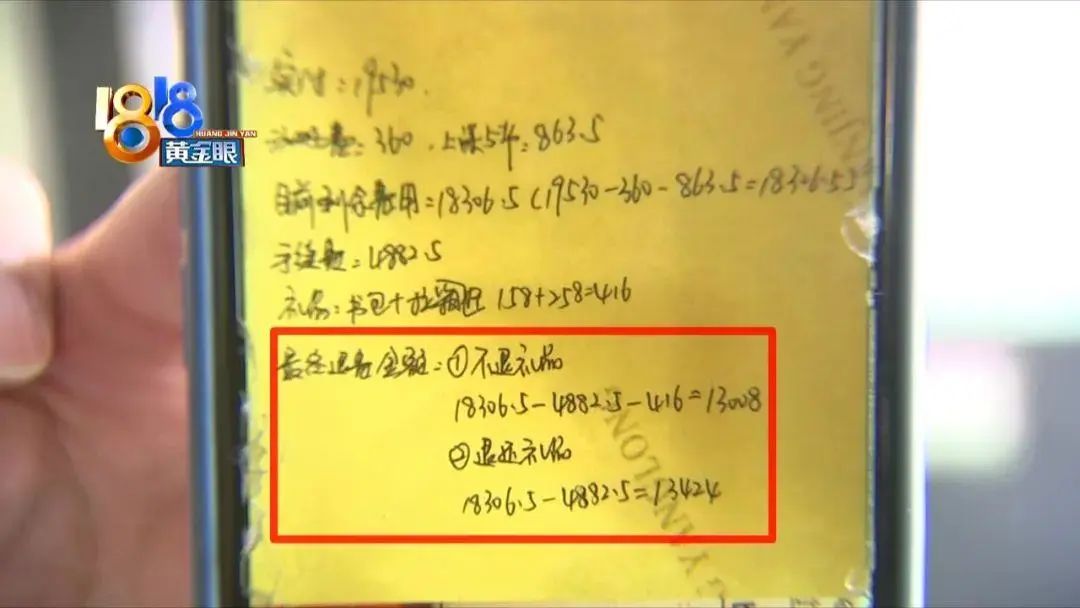 1818
HUANG JIN YAN
黄金眼
实付:19530.
费:360.上课5节:863.5
目前剩余费用=18306.5(19530-360-863.5=18306.5)
手续费=4882.5
礼品:书包+拉箱 158+258=416
最终退费金额:①不退礼品
18306.5-4882.5-416=13008
②退还礼品
18306.5-4882.5=13424